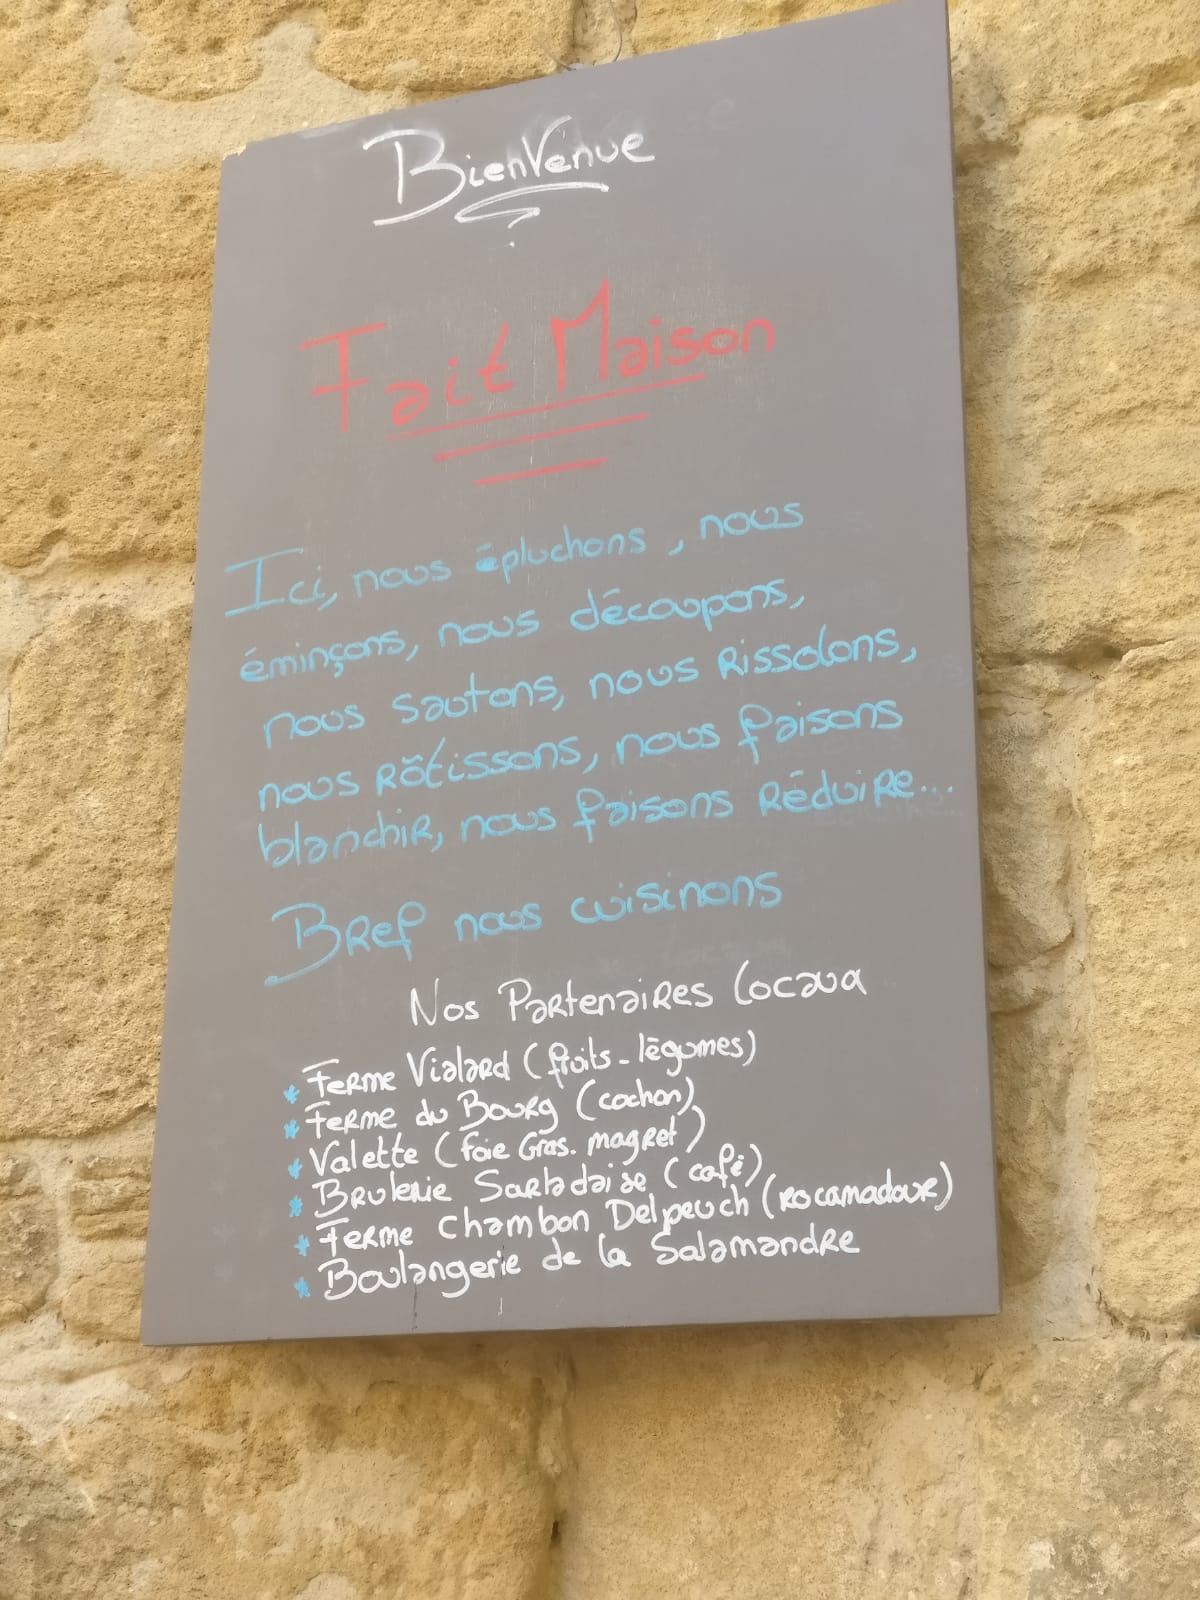 Bienvenue
Fait Maison
Ici, nous épluchons, nous
éminçons, nous découpons,
nous sautons, nous rissolons,
nous rôtissons, nous faisons
blanchir, nous faisons réduire...
Bref nous cuisinons
Nos Partenaires Locaux
* Ferme Vialard (fruits - légumes)
* Ferme du Bourg (cochon)
* Valette (foie Gras. magret)
* Brulerie Sarladaise (café)
* Ferme Chambon Delpeuch (rocamadour)
* Boulangerie de la Salamandre